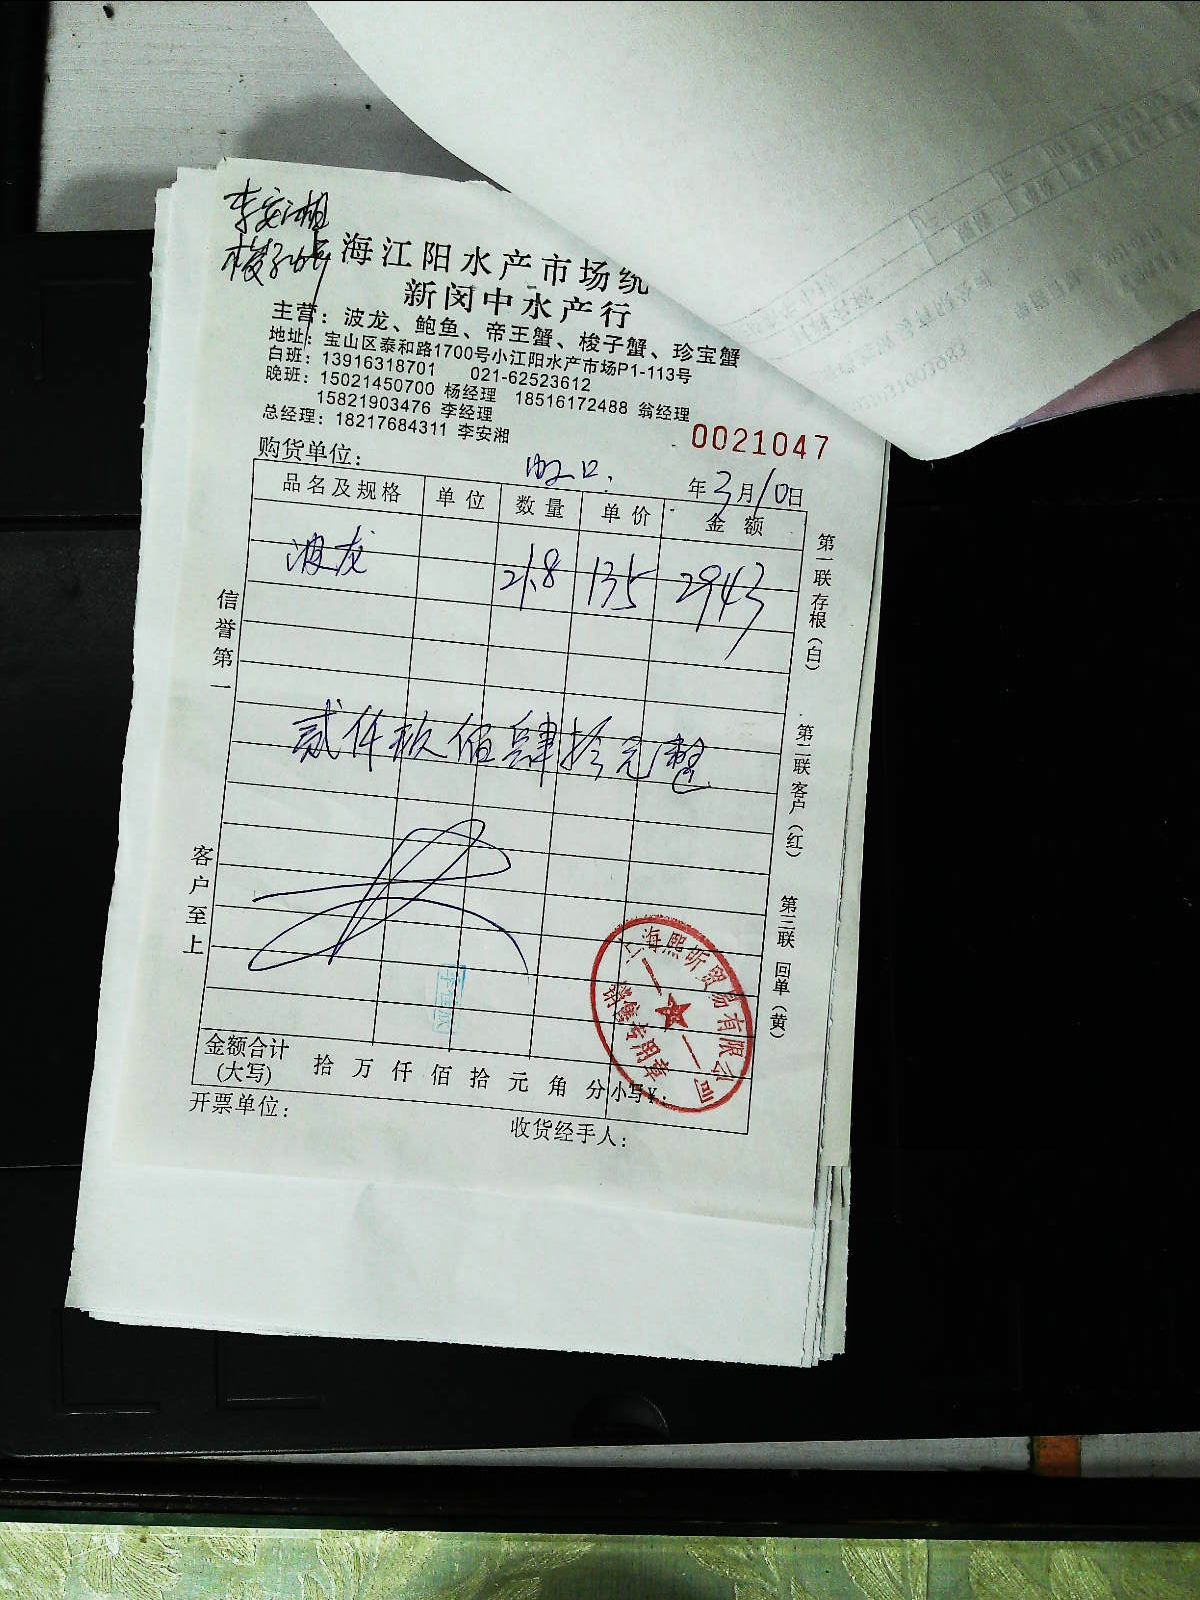 李安湘
梭子蟹
海江阳水产市场统
新闵中水产行
主营：波龙、鲍鱼、帝王蟹、梭子蟹、珍宝蟹
地址：宝山区泰和路1700号小江阳水产市场P1-113号
白班：13916318701 021-62523612
晚班：15021450700 杨经理 18516172488 翁经理
15821903476 李经理
总经理：18217684311 李安湘
0021047
购货单位： 年3月10日
品名及规格 单位 数量 单价 金额
波龙 21.8 135 2943
贰仟玖佰肆拾元整
信誉第一
客户至上
第一联 存根（白）
第二联 客户（红）
第三联 回单（黄）
上海熙昕贸易有限公司
销售专用章
金额合计（大写） 拾 万 仟 佰 拾 元 角 分 小写¥：
开票单位：
收货经手人：